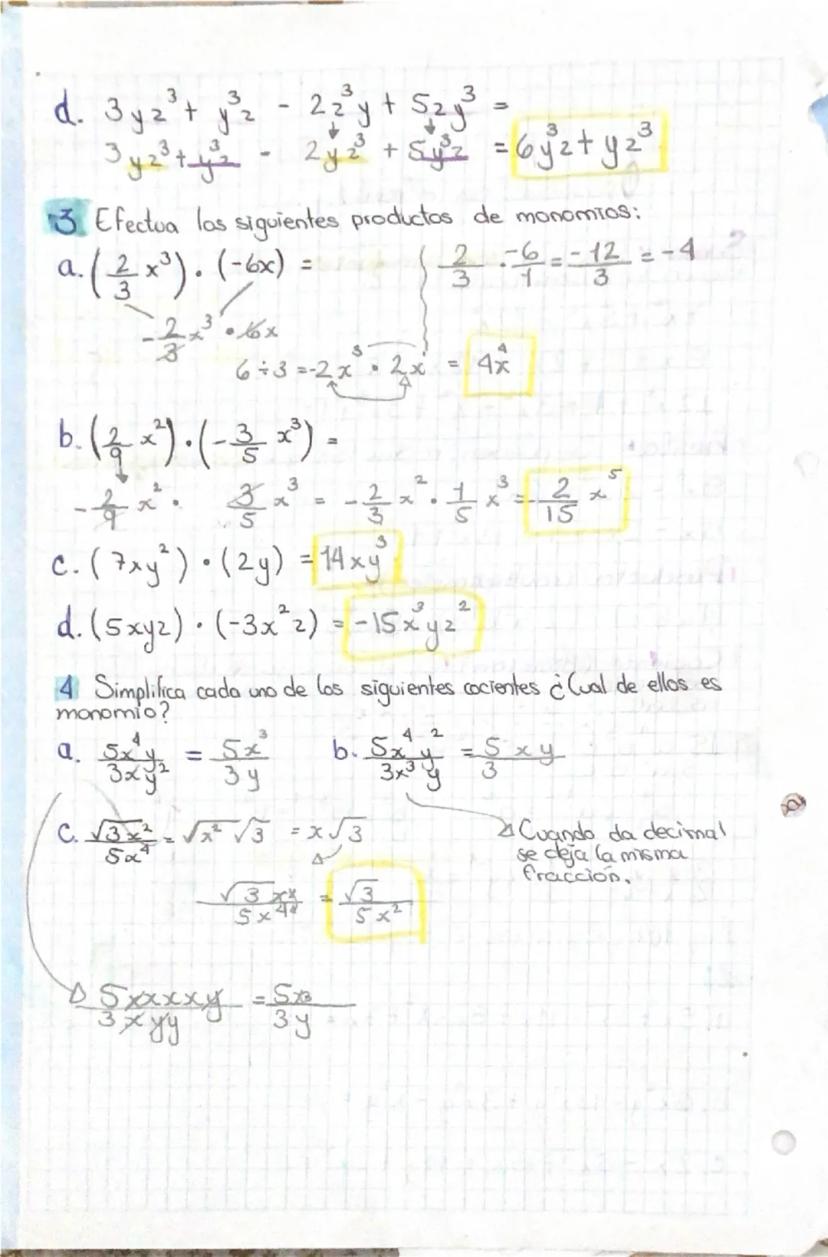 d. 3yz³ + y³z - 2z³y + 5zy³ =
3yz³ + y³z - 2yz³ + 5y³z = 6y³z + yz³
3 Efectua los siguientes productos de monomios:
a. (2/3 x³) · (-6x) = 2/3 · -6/1 = -12/3 = -4
-2/3 x³ · 6x
6 ÷ 3 = -2x³ · 2x = 4x⁴
b. (2/9 x²) · (-3/5 x³) =
-2/9 x² · 3/5 x³ = -2/3 x² · 1/5 x³ = -2/15 x⁵
c. (7xy²) · (2y) = 14xy³
d. (5xyz) · (-3x²z) = -15x³yz²
4 Simplifica cada uno de los siguientes cocientes ¿Cual de ellos es
monomio?
a. 5x⁴y/3xy² = 5x³/3y b. 5x⁴y²/3x³y = 5xy/3
c. √3x²/5x⁴ = √x² √3 = x√3
Cuando da decimal
se deja la misma
fracción.
√3 xx/5x⁴ = √3/5x²
5xxxxy/3xyy = 5x3/3y